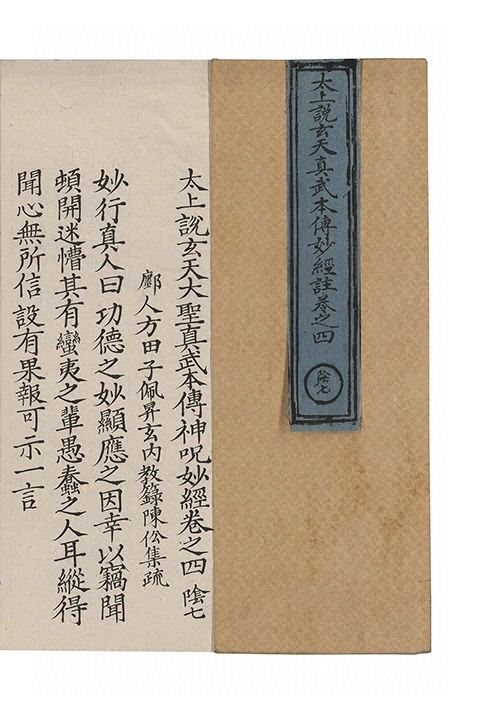 太上說玄天真武本傳妙經註卷之四
陰七
太上說玄天大聖真武本傳神呪妙經卷之四 陰七
鄽人方田子佩昇玄內教籙陳伀集疏
妙行真人曰功德之妙顯應之因幸以竊聞
頓開迷懵其有蠻夷之輩愚蠢之人耳縱得
聞心無所信設有果報可示一言